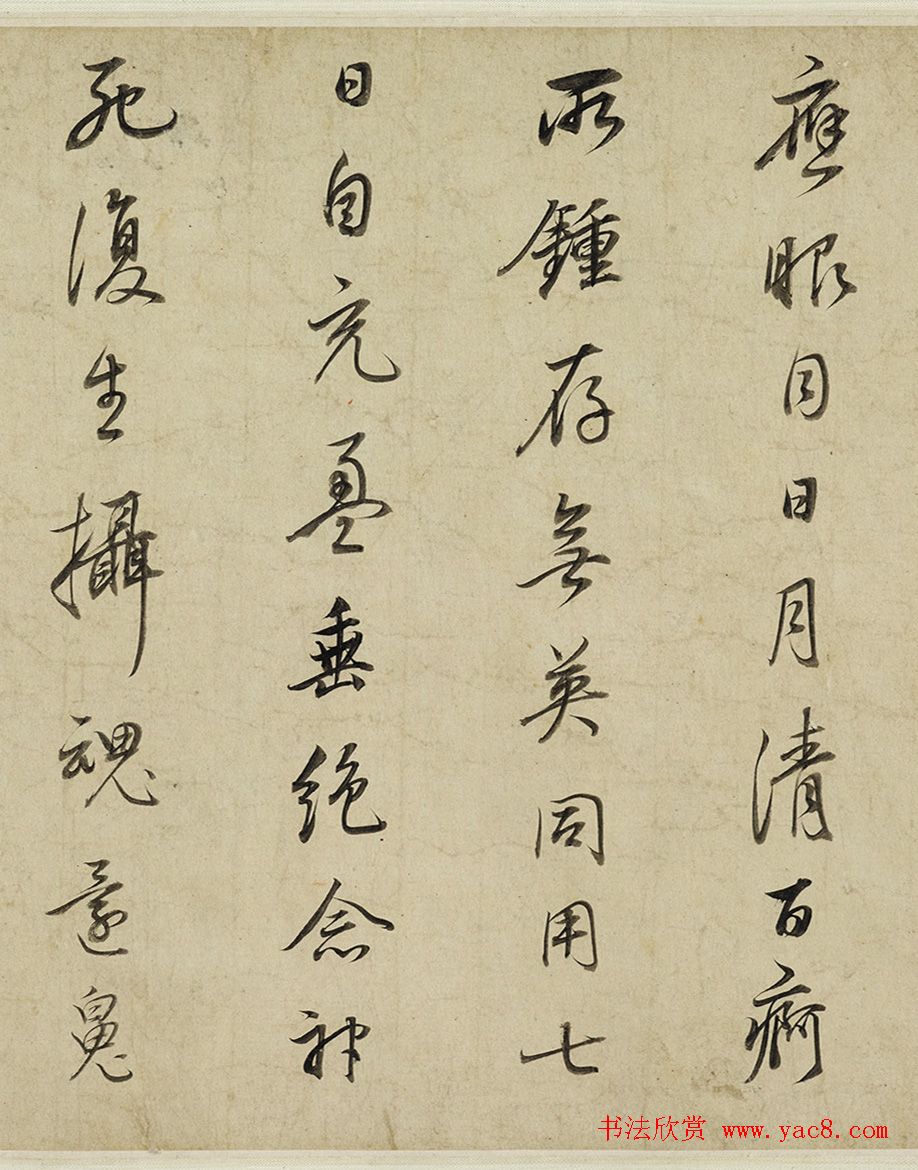 應眼目日月清百痾
所鍾存無英同用七
日自充盈垂絕念神
死復生攝魂還魄
书法欣赏 www.yac8.com